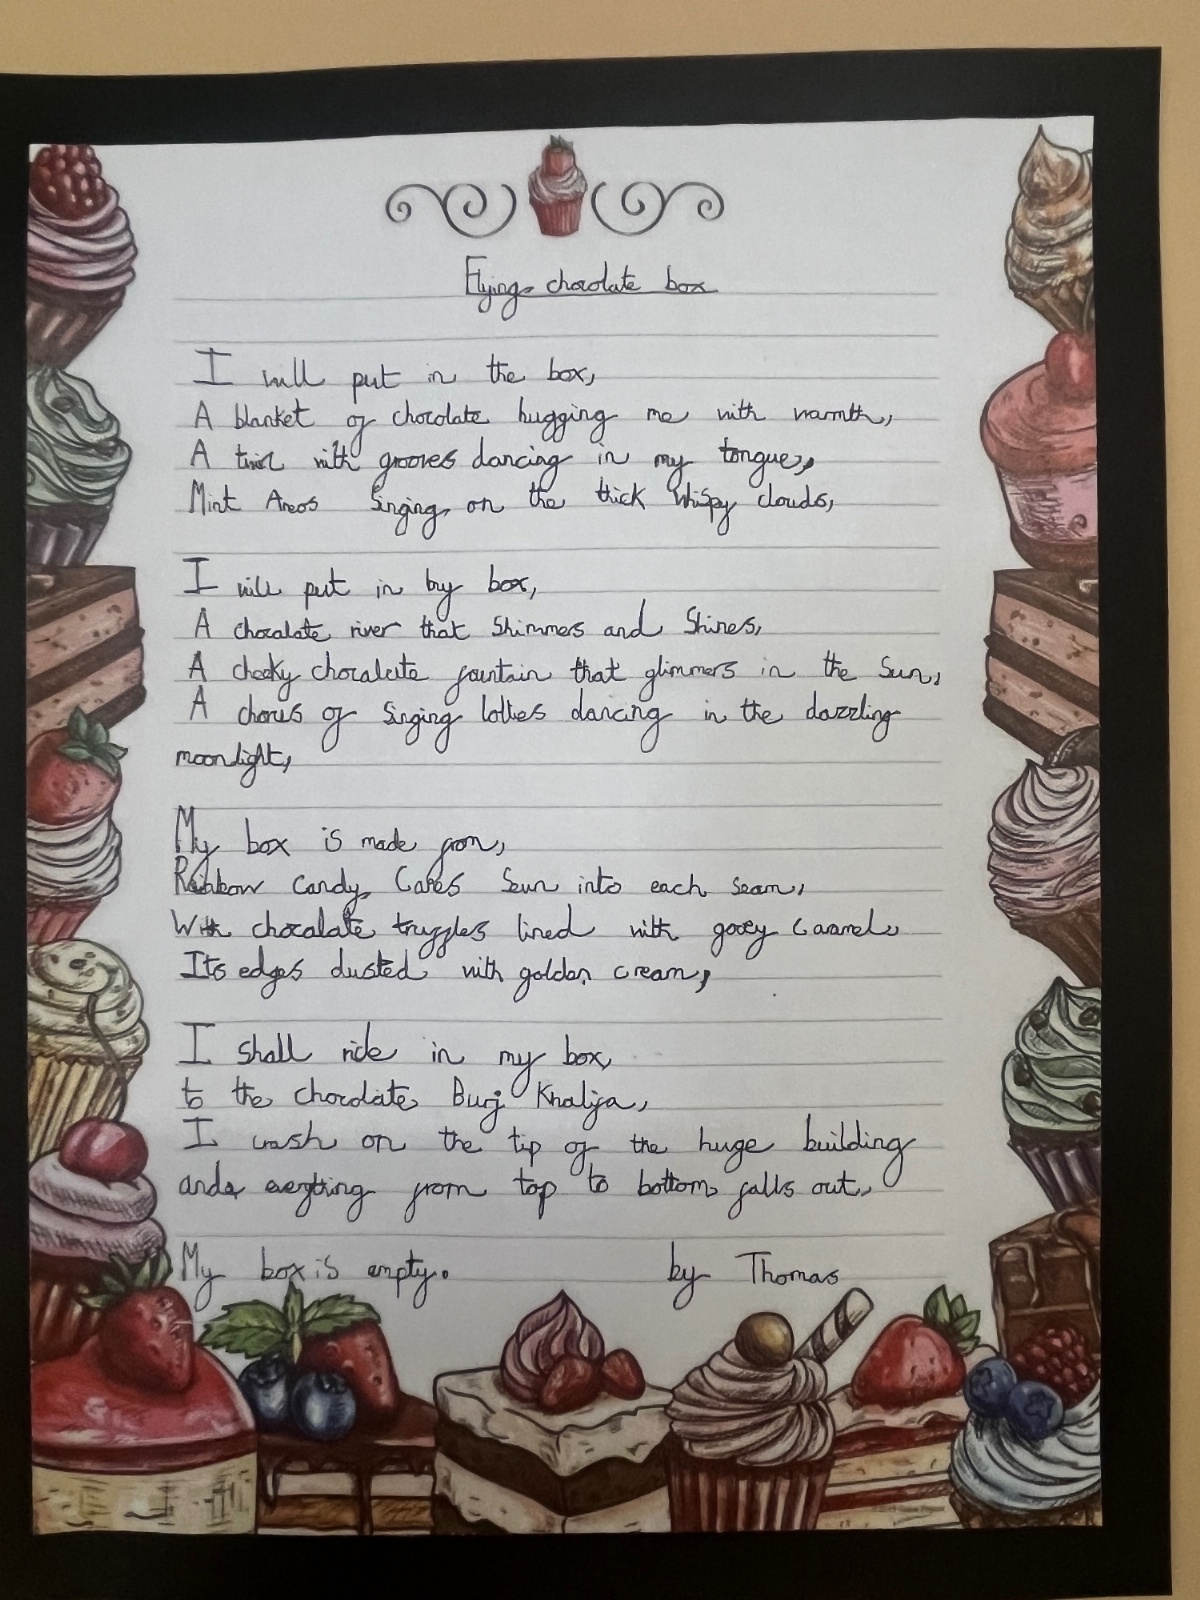 Flying chocolate box
I will put in the box,
A blanket of chocolate hugging me with warmth,
A twirl with grooves dancing in my tongue,
Mint Aeros Singing on the thick Whispy clouds,
I will put in by box,
A chocalate river that Shimmers and Shines,
A cheeky chocalate fountain that glimmers in the Sun,
A chorus of Singing lollies dancing in the dazzling
moonlight,
My box is made from,
Rainbow Candy Canes Sewn into each seam,
With chocalate truffles lined with gooey Caramel,
Its edges dusted with golden cream,
I shall ride in my box,
to the chocolate Burj Khalifa,
I crash on the tip of the huge building
and everything from top to bottom falls out,
My box is empty. by Thomas